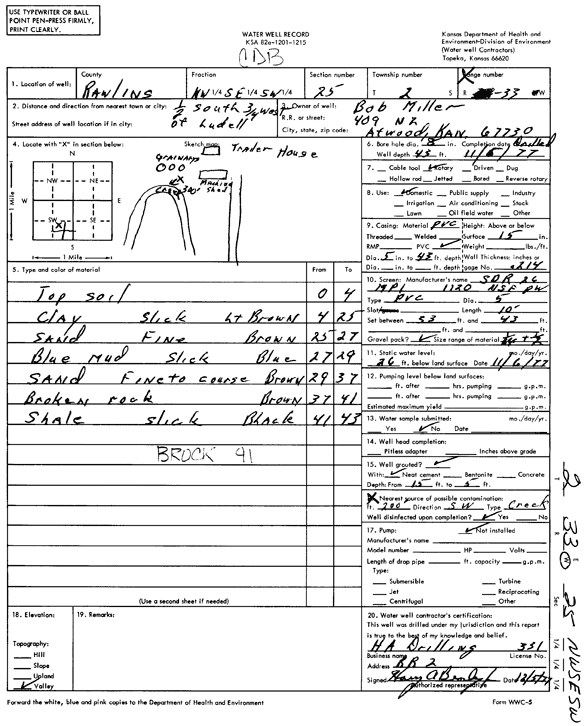 USE TYPEWRITER OR BALL
POINT PEN-PRESS FIRMLY,
PRINT CLEARLY.
WATER WELL RECORD
KSA 82a-1201-1215
CDB
Kansas Department of Health and
Environment-Division of Environment
(Water well Contractors)
Topeka, Kansas 66620
1. Location of well:
County
Rawlins
Fraction
NW 1/4 SE 1/4 SW 1/4
Section number
25
Township number
T 2 S
Range number
R 33 W
2. Distance and direction from nearest town or city:
1/2 south 3/4 west
Street address of well location if in city:
of Ludell
3. Owner of well:
Bob Miller
R.R. or street:
409 N 2
City, state, zip code:
Atwood, KAN. 67730
4. Locate with "X" in section below:
Sketch map:
N
NW
NE
W
E
SW
SE
S
X
1 Mile
1 Mile
Trader House
GRAINARY
Machine Shed
Creek
5. Type and color of material
From
To
Top soil 0 4
Clay Slick Lt Brown 4 25
Sand Fine Brown 25 27
Blue Mud Slick Blue 27 29
Sand Fine to course Brown 29 37
Broken rock Brown 37 41
Shale slick Black 41 43
BROCK 41
(Use a second sheet if needed)
6. Bore hole dia. 8 in. Completion date
Well depth 43 ft. 11/6/77
7. Cable tool Rotary Driven Dug
Hollow rod Jetted Bored Reverse rotary
8. Use: Domestic Public supply Industry
Irrigation Air conditioning Stock
Lawn Oil field water Other
9. Casing: Material PVC Height: Above or below
Threaded Welded Surface 15 in.
RMP PVC Weight lbs./ft.
Dia. 5 in. to 43 ft. depth Wall Thickness: inches or
Dia. in. to ft. depth gage No. .214
10. Screen: Manufacturer's name SDR 26
MPI 1120 NSF PW
Type PVC Dia. 5
Slot/gauze Length 10'
Set between 33 ft. and 43 ft.
ft. and ft.
Gravel pack? Size range of material 1/4 + 1/2
11. Static water level: mo./day/yr.
26 ft. below land surface Date 11/6/77
12. Pumping level below land surfaces:
ft. after hrs. pumping g.p.m.
ft. after hrs. pumping g.p.m.
Estimated maximum yield g.p.m.
13. Water sample submitted: mo./day/yr.
Yes No Date
14. Well head completion:
Pitless adapter Inches above grade
15. Well grouted?
With: Neat cement Bentonite Concrete
Depth: From 15 ft. to 5 ft.
X Nearest source of possible contamination:
ft. 200 Direction SW Type Creek
Well disinfected upon completion? Yes No
17. Pump: Not installed
Manufacturer's name
Model number HP Volts
Length of drop pipe ft. capacity g.p.m.
Type:
Submersible Turbine
Jet Reciprocating
Centrifugal Other
18. Elevation:
19. Remarks:
Topography:
Hill
Slope
Upland
Valley
20. Water well contractor's certification:
This well was drilled under my jurisdiction and this report
is true to the best of my knowledge and belief.
HA Drilling 331
Business name License No.
Address RR 2
Signed Date
Authorized representative
Forward the white, blue and pink copies to the Department of Health and Environment
Form WWC-5
T 2 R 33 E W Sec 25 1/4 1/4 1/4 NWSESW